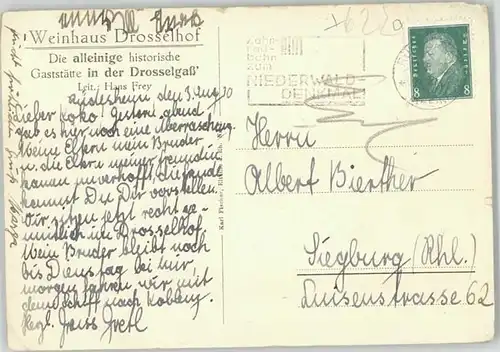 Weinhaus Drosselhof
Die alleinige historische
Gaststätte in der Drosselgaß'
Leit.: Hans Frey
Rüdesheim den 3. Aug. 30
Lieber Koko! Gestern abend
gab es hier noch eine Überraschung.
Meine Eltern mein Bruder
u. die Eltern meiner Freundin
kamen unverhofft, die Freude
kannst Du Dir vorstellen.
Wir sitzen jetzt recht ge-
mütlich im Drosselhof.
Mein Bruder bleibt noch
bis Dienstag bei mir,
morgen fahren wir mit
dem Schiff nach Koblenz.
Hzgl. Gruss Gretl
Zahn-
rad-
bahn
zum
NIEDERWALD-
DENKMAL
Deutsches Reich
8 8
Herrn
Albert Bierther
Siegburg (Rhl.)
Luisenstrasse 62